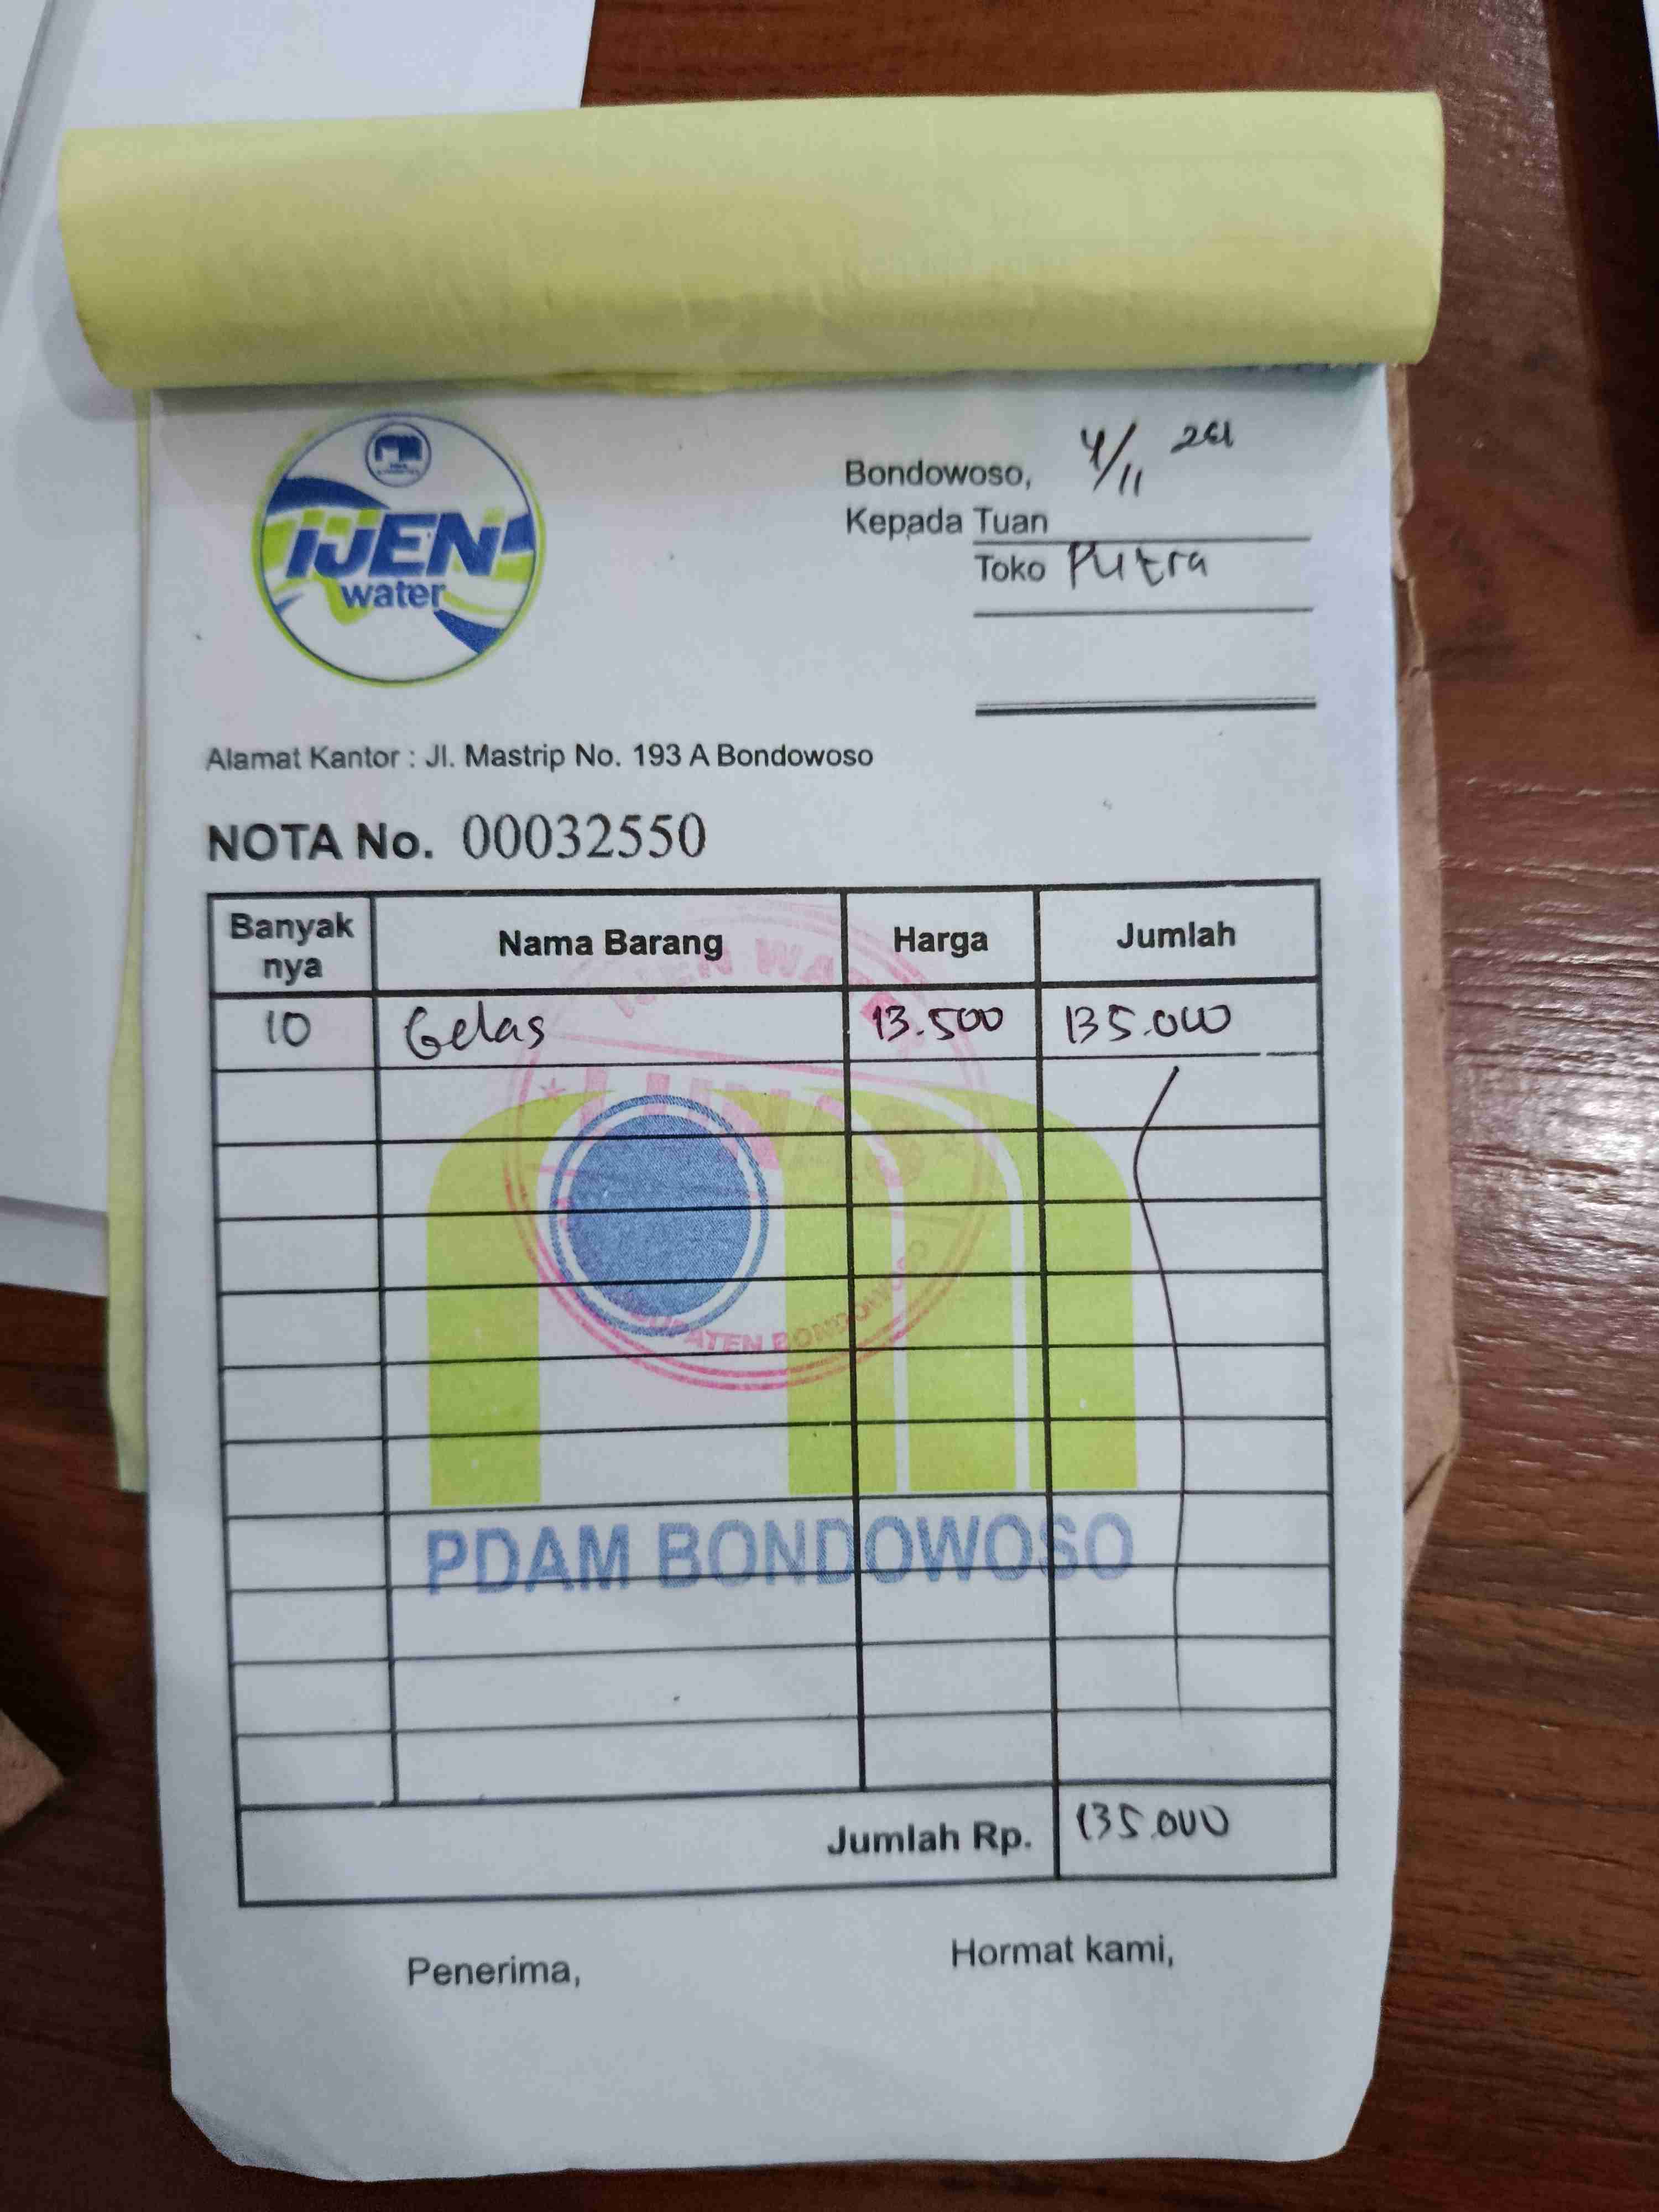 IJEN
water
Bondowoso, 4/11
Kepada Tuan
Toko Putra
Alamat Kantor : Jl. Mastrip No. 193 A Bondowoso
NOTA No. 00032550
Banyak nya Nama Barang Harga Jumlah
10 Gelas 13.500 135.000
IJEN WATER
LUNAS
KABUPATEN BONDOWOSO
PDAM BONDOWOSO
Jumlah Rp. 135.000
Penerima, Hormat kami,